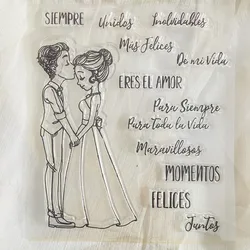 SIEMPRE Unidos Inolvidables
Más Felices
De mi Vida
ERES EL AMOR
Para Siempre
Para Toda la Vida
Maravillosos
MOMENTOS
FELICES
Juntos